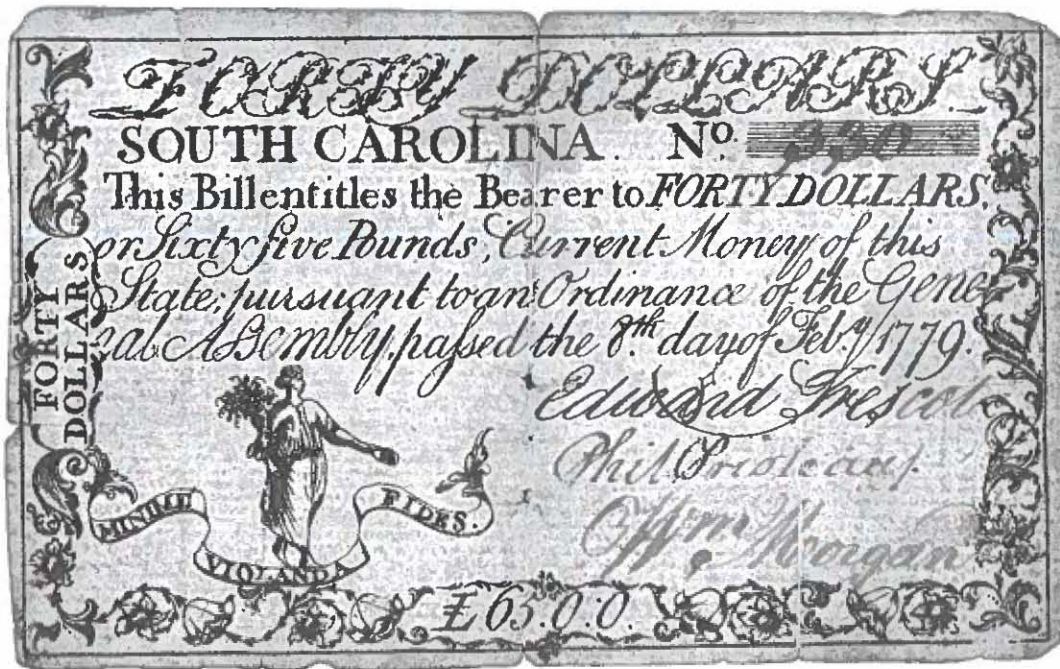 FORTY DOLLARS.
SOUTH CAROLINA. No.
This Bill entitles the Bearer to FORTY DOLLARS,
or Sixty five Pounds, Current Money of this
State, pursuant to an Ordinance of the Gene-
ral Assembly, passed the 8th. day of Feb.y 1779.
FORTY
DOLLARS
Edward Trescot
Phil Prioleau
Wm Morgan
MINIME VIOLANDA FIDES.
£65.0.0.